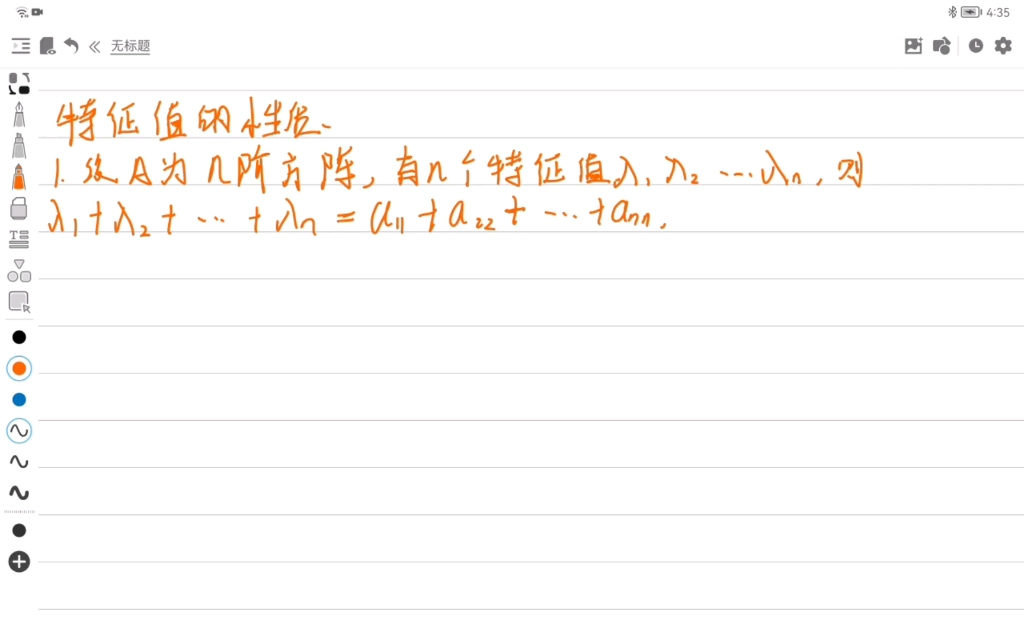 4:35
无标题
特征值的性质.
1. 设A为n阶方阵, 有n个特征值λ₁ λ₂ …λₙ, 则
λ₁+λ₂+ … +λₙ = a₁₁+a₂₂+ …+aₙₙ.